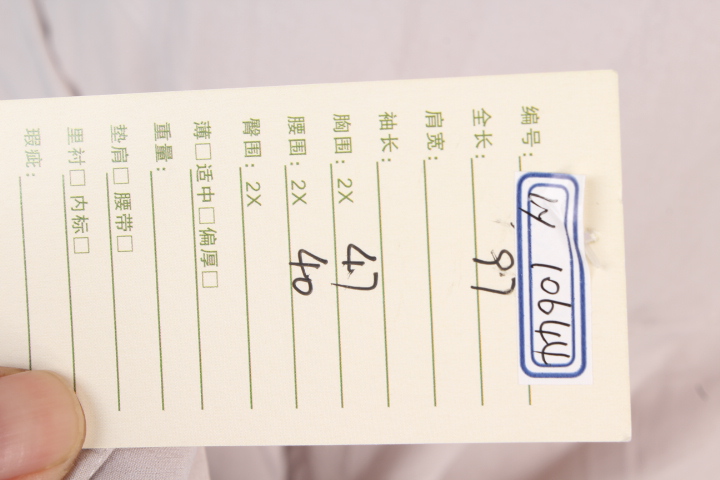 编号: W 10644
全长: 97
肩宽:
袖长:
胸围: 2X 47
腰围: 2X 40
臀围: 2X
薄□适中□偏厚□
重量:
垫肩□ 腰带□
里衬□ 内标□
瑕疵: